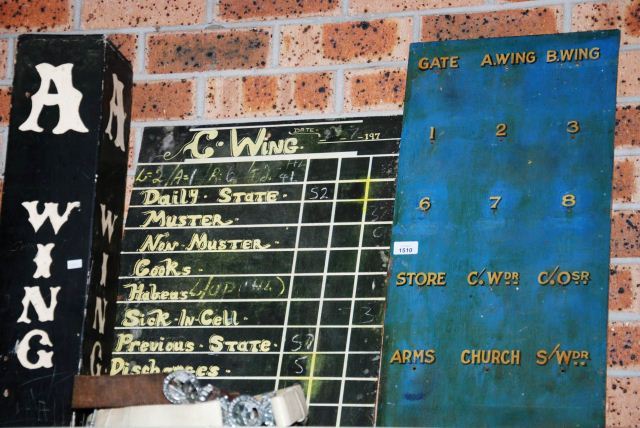 A
WING
A
WING
C. WING.
DATE
-7-197
Daily · State ·
52
Muster ·
Non · Muster ·
Cooks ·
Habeus
Sick · In · Cell ·
3
Previous · State ·
50
Discharges ·
5
GATE A.WING B.WING
1 2 3
6 7 8
1510
STORE C/WDR C/OSR
ARMS CHURCH S/WDR